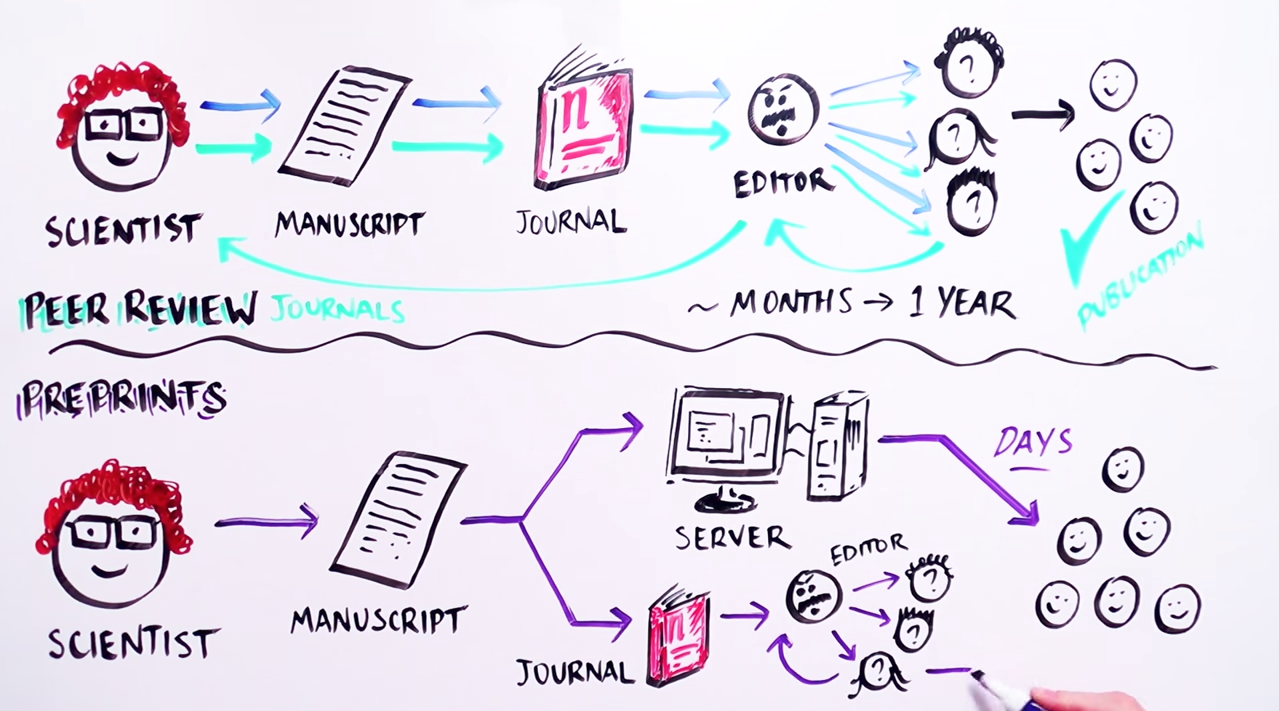 ?
?
?
n
SCIENTIST
MANUSCRIPT
JOURNAL
EDITOR
PUBLICATION
PEER REVIEW JOURNALS
~ MONTHS → 1 YEAR
PREPRINTS
DAYS
SERVER
EDITOR
?
?
?
n
SCIENTIST
MANUSCRIPT
JOURNAL